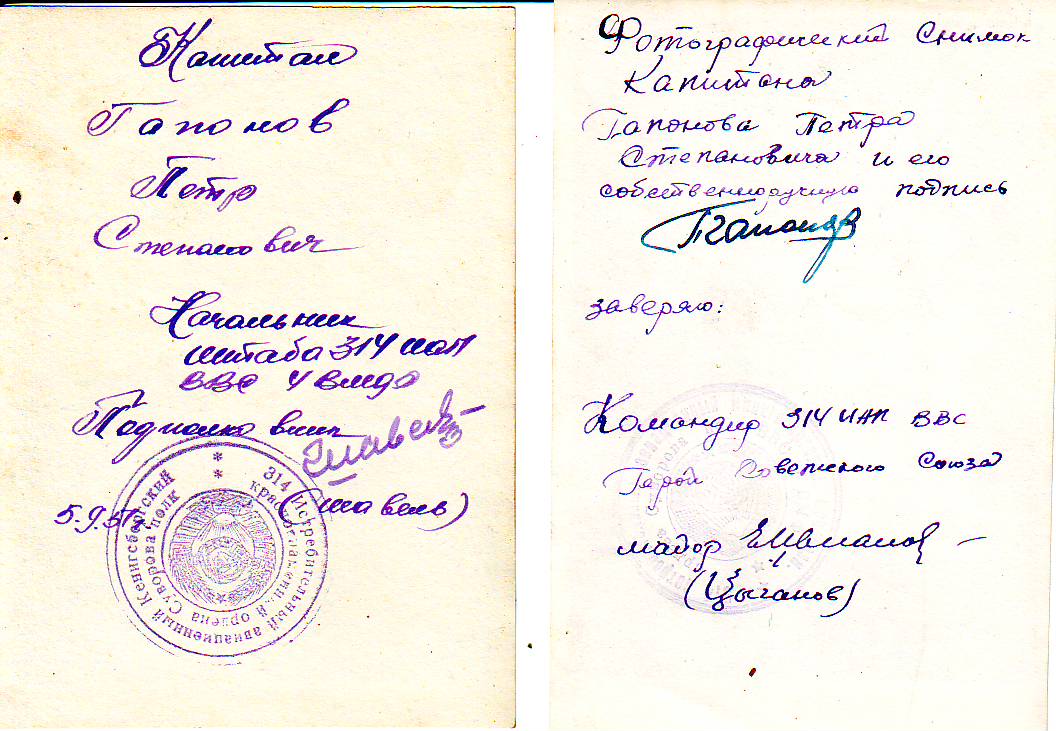 Капитан
Гапонов
Петр
Степанович
Начальник
штаба 314 иап
ВВС 4 ВМФ
Подполковник
(Шавель)
5.9.51.
314 Истребительный авиационный Кенигсбергский
краснознаменный ордена Суворова полк
Фотографический снимок
Капитана
Гапонова Петра
Степановича и его
собственноручную подпись
Гапонов
заверяю:
Командир 314 ИАП ВВС
Герой Советского Союза
майор
(Цыганов)